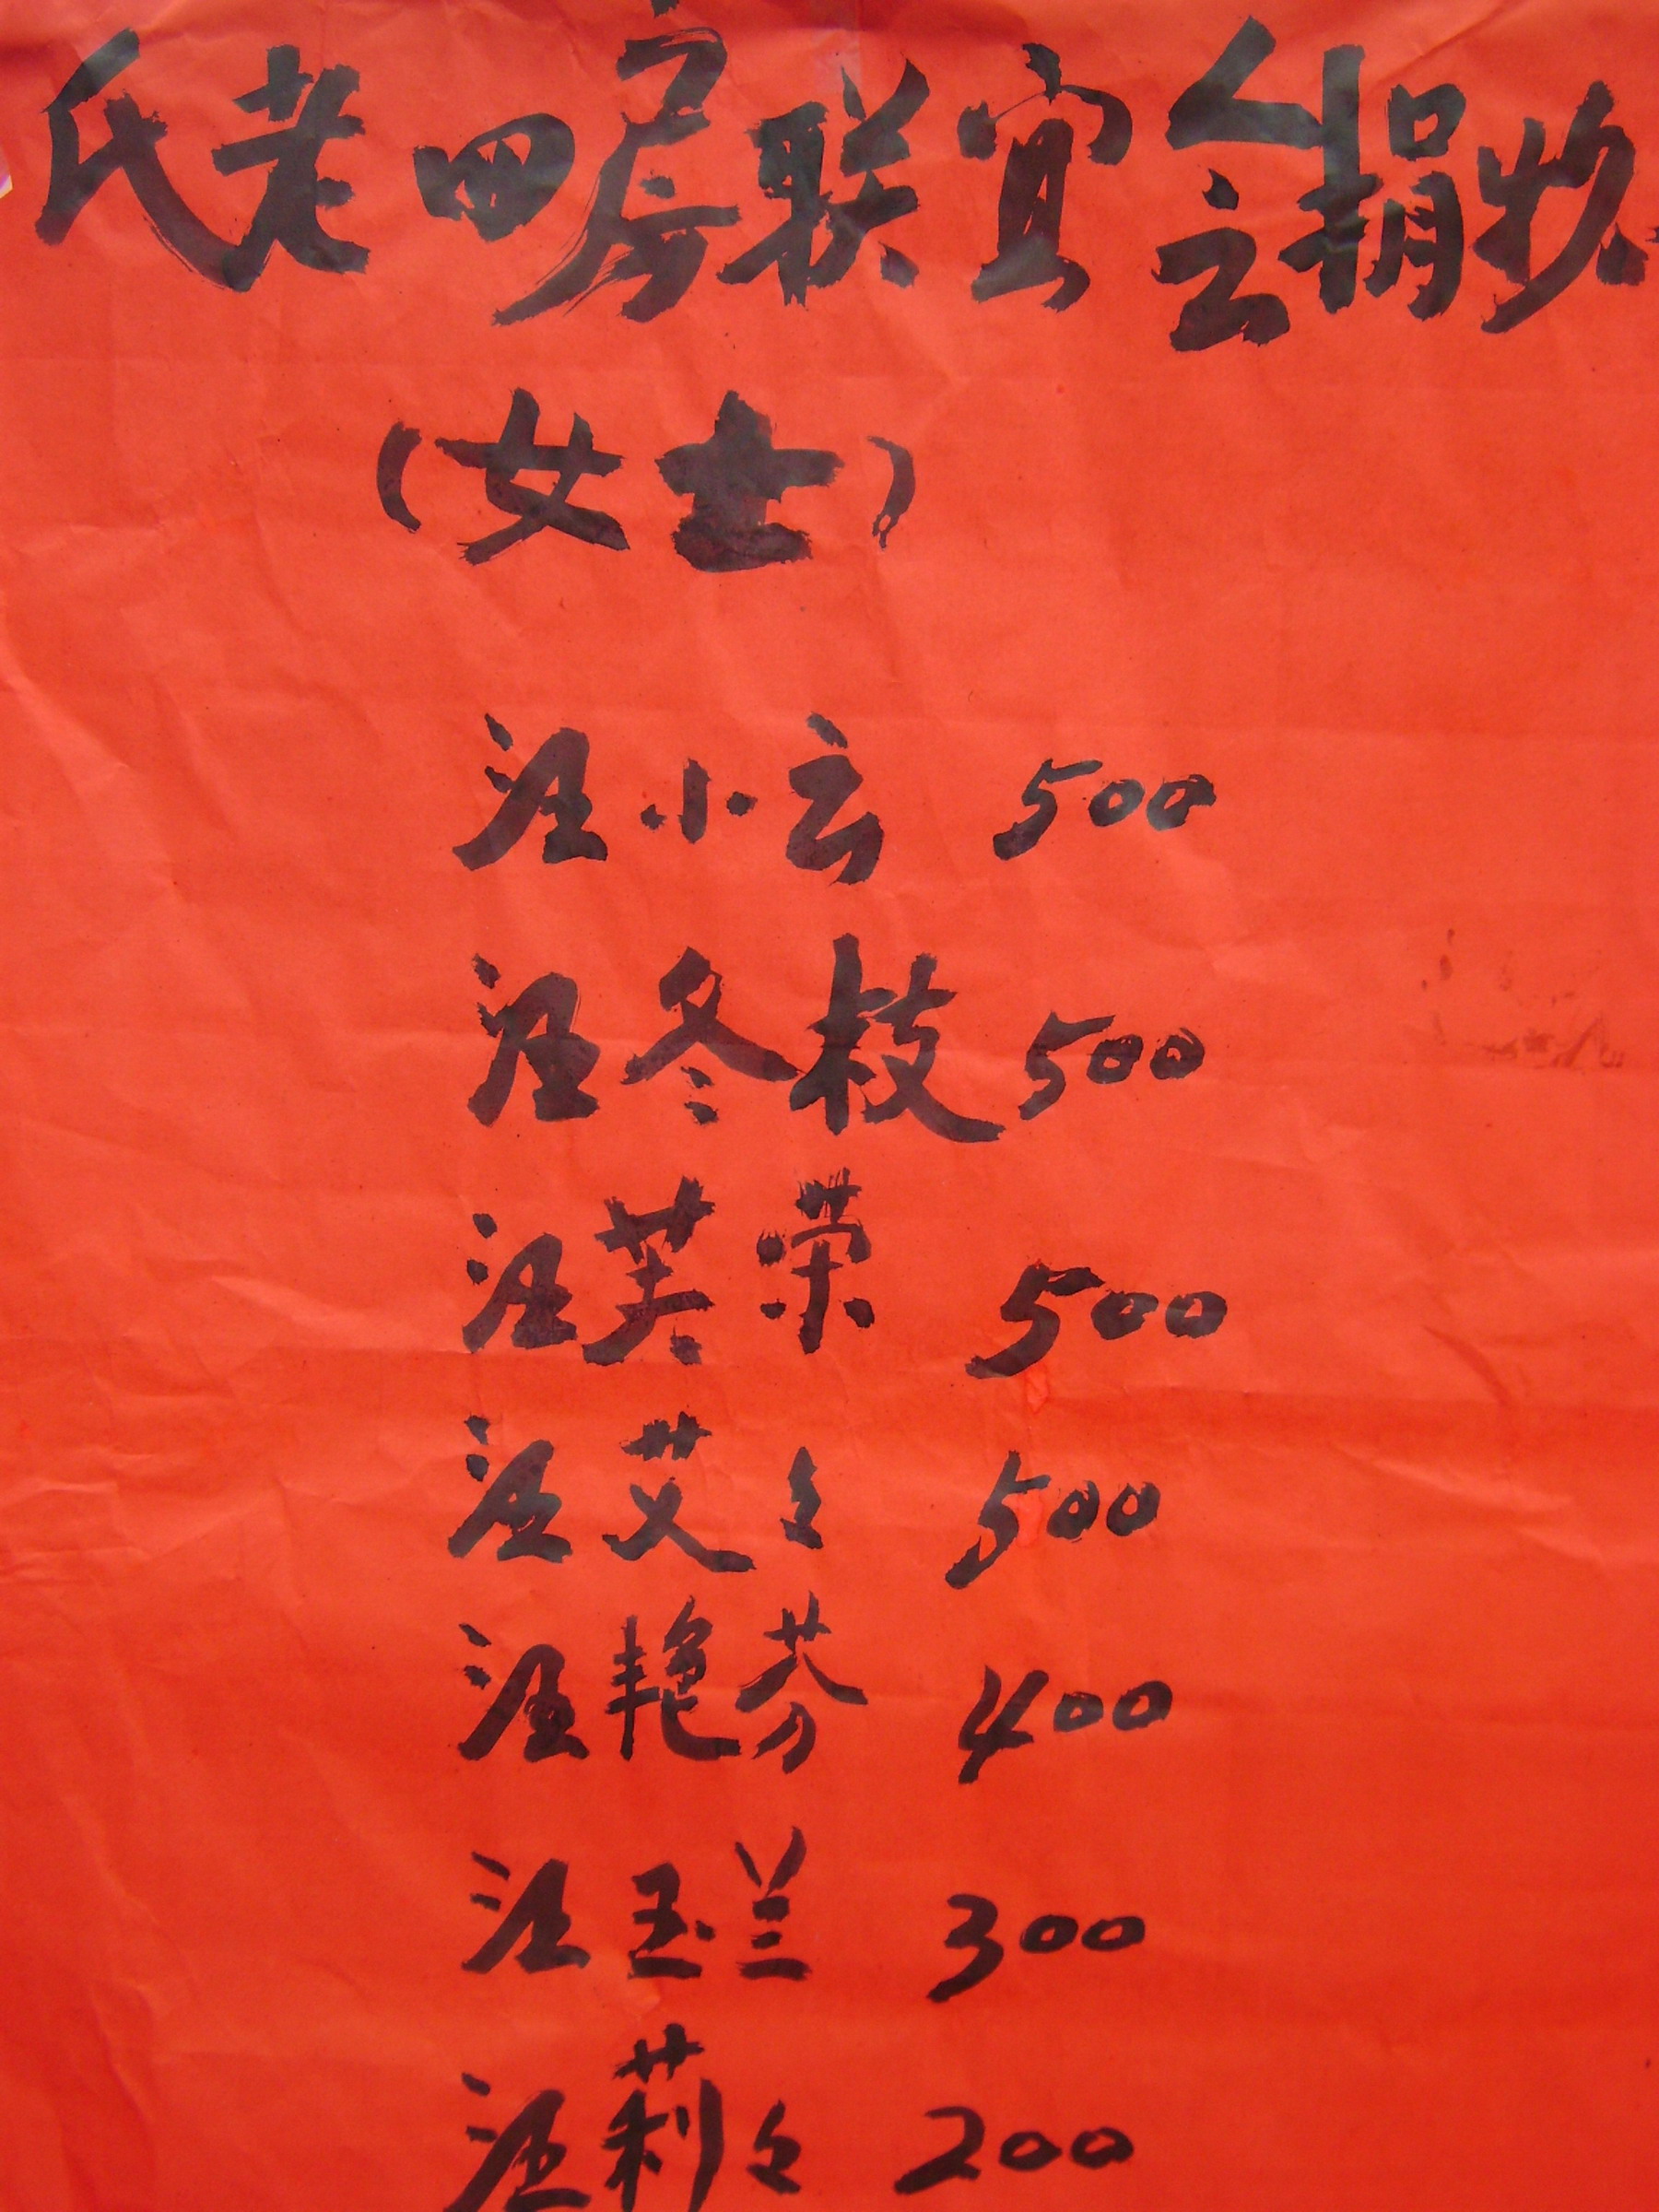 氏老四房联宜会捐物
(女士)
汪小云 500
汪冬枝 500
汪芙荣 500
汪艾々 500
汪艳芬 400
汪玉兰 300
汪莉々 200